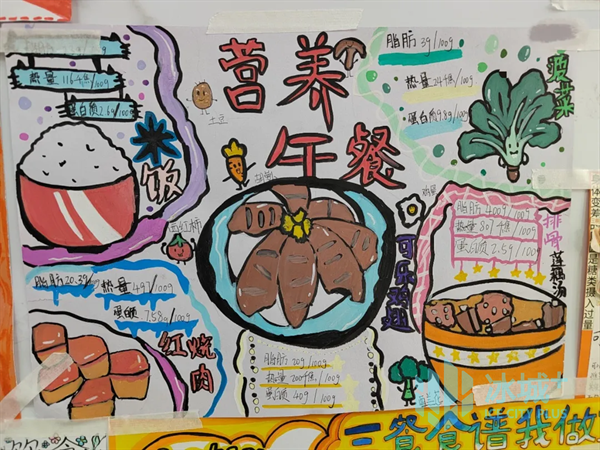 营养
午餐
热量 116千焦/100g
蛋白质2.6g/100g
米饭
土豆
脂肪 3g/100g
热量 24千焦/100g
蛋白质9.8g/100g
菠菜
胡萝卜
西红柿
鸡蛋
脂肪 20.3g
热量 497/100g
7.58g/100g
红烧肉
可乐鸡翅
脂肪 20g/100g
热量 200千焦/100g
蛋白质 40g/100g
脂肪 400g/100g
热量 807千焦/100g
蛋白质 2.5g/100g
排骨莲藕汤
冰城+
三餐食谱我做